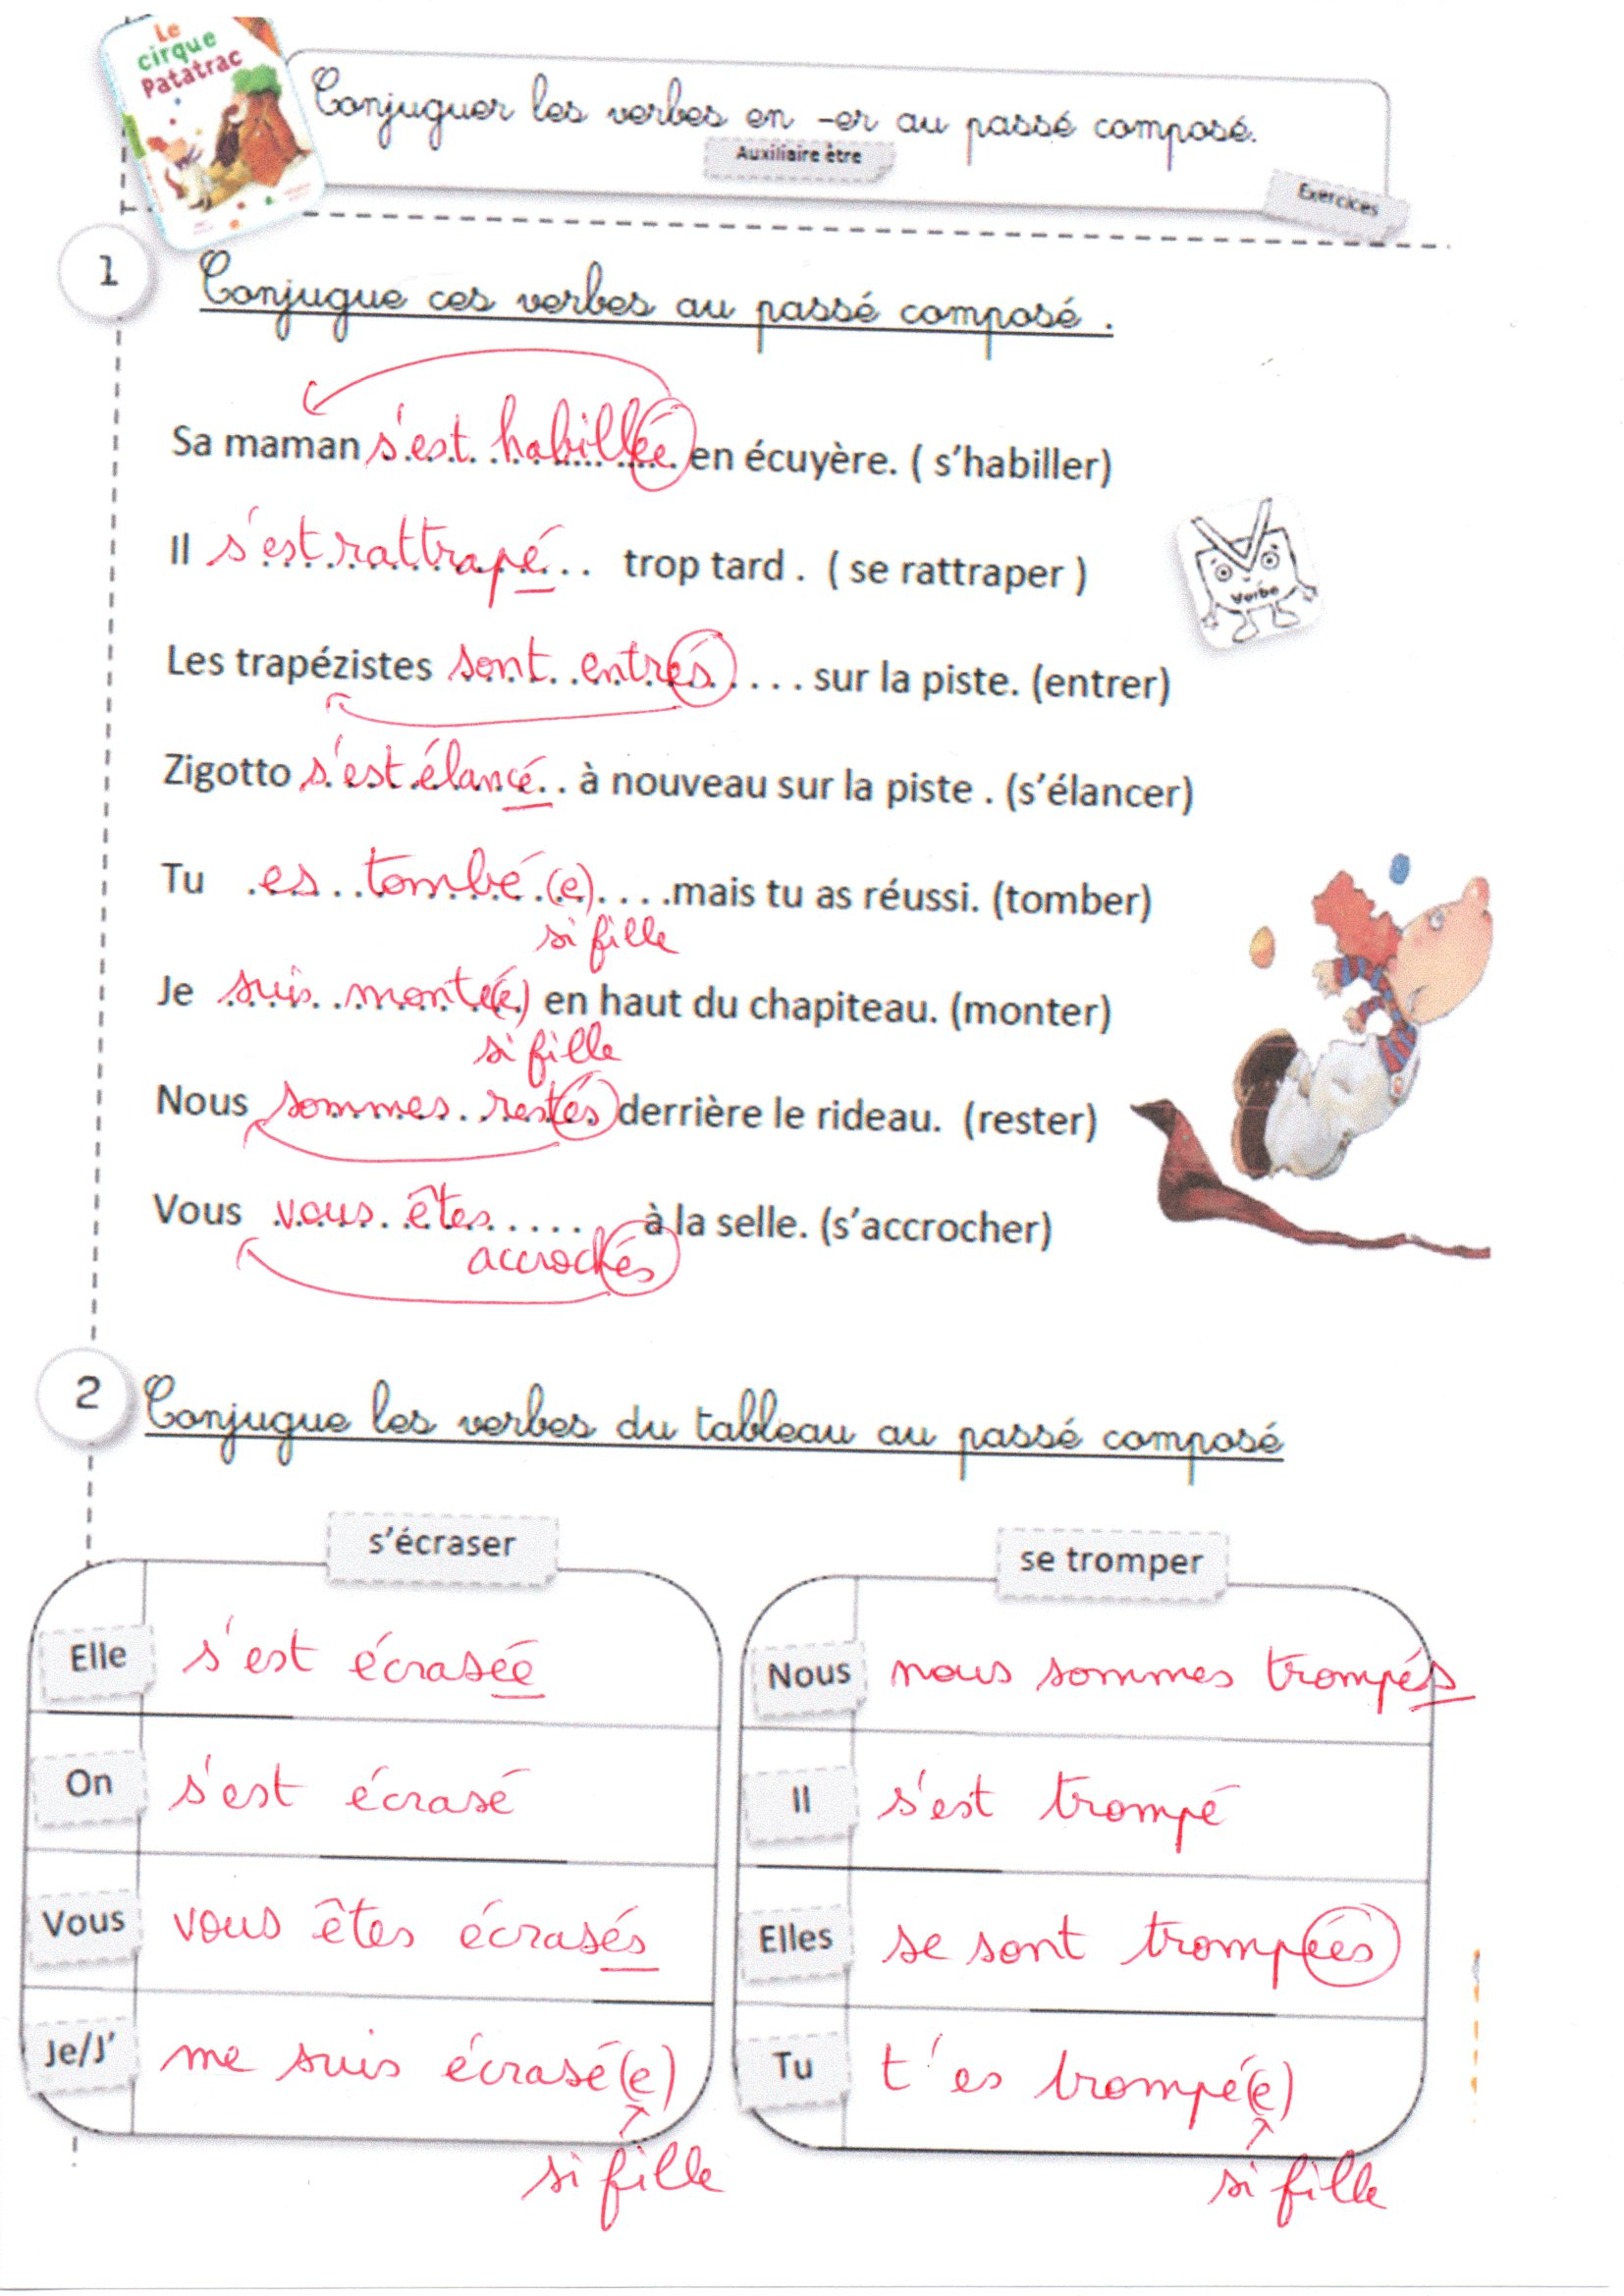 Le
cirque
Patatrac
Conjuguer les verbes en -er au passé composé.
Auxiliaire être
Exercices
1
Conjugue ces verbes au passé composé .
Sa maman s'est habillée en écuyère. ( s'habiller)
Il s'est rattrapé trop tard . ( se rattraper )
Verbe
Les trapézistes sont entrés sur la piste. (entrer)
Zigotto s'est élancé à nouveau sur la piste . (s'élancer)
Tu es tombé(e) mais tu as réussi. (tomber)
si fille
Je suis monté(e) en haut du chapiteau. (monter)
si fille
Nous sommes restés derrière le rideau. (rester)
Vous vous êtes à la selle. (s'accrocher)
accrochés
2
Conjugue les verbes du tableau au passé composé
s'écraser
Elle s'est écrasée
On s'est écrasé
Vous vous êtes écrasés
Je/J' me suis écrasé(e)
si fille
se tromper
Nous nous sommes trompés
Il s'est trompé
Elles se sont trompées
Tu t'es trompé(e)
si fille